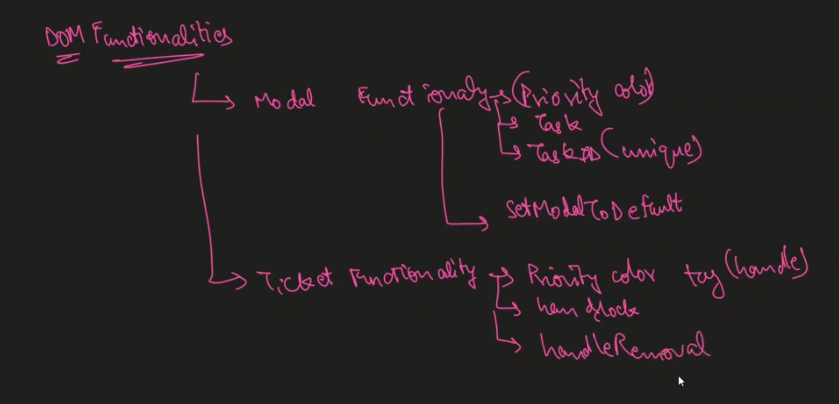 DOM Functionalities
Modal Functionaly (Priority color)
Task
TaskID (unique)
SetModalToDefault
Ticket Functionality Priority color (handle)
handleRemoval